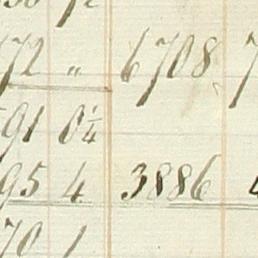 72 " 6708 7
91 0¼
95 4 3886 4
70 1